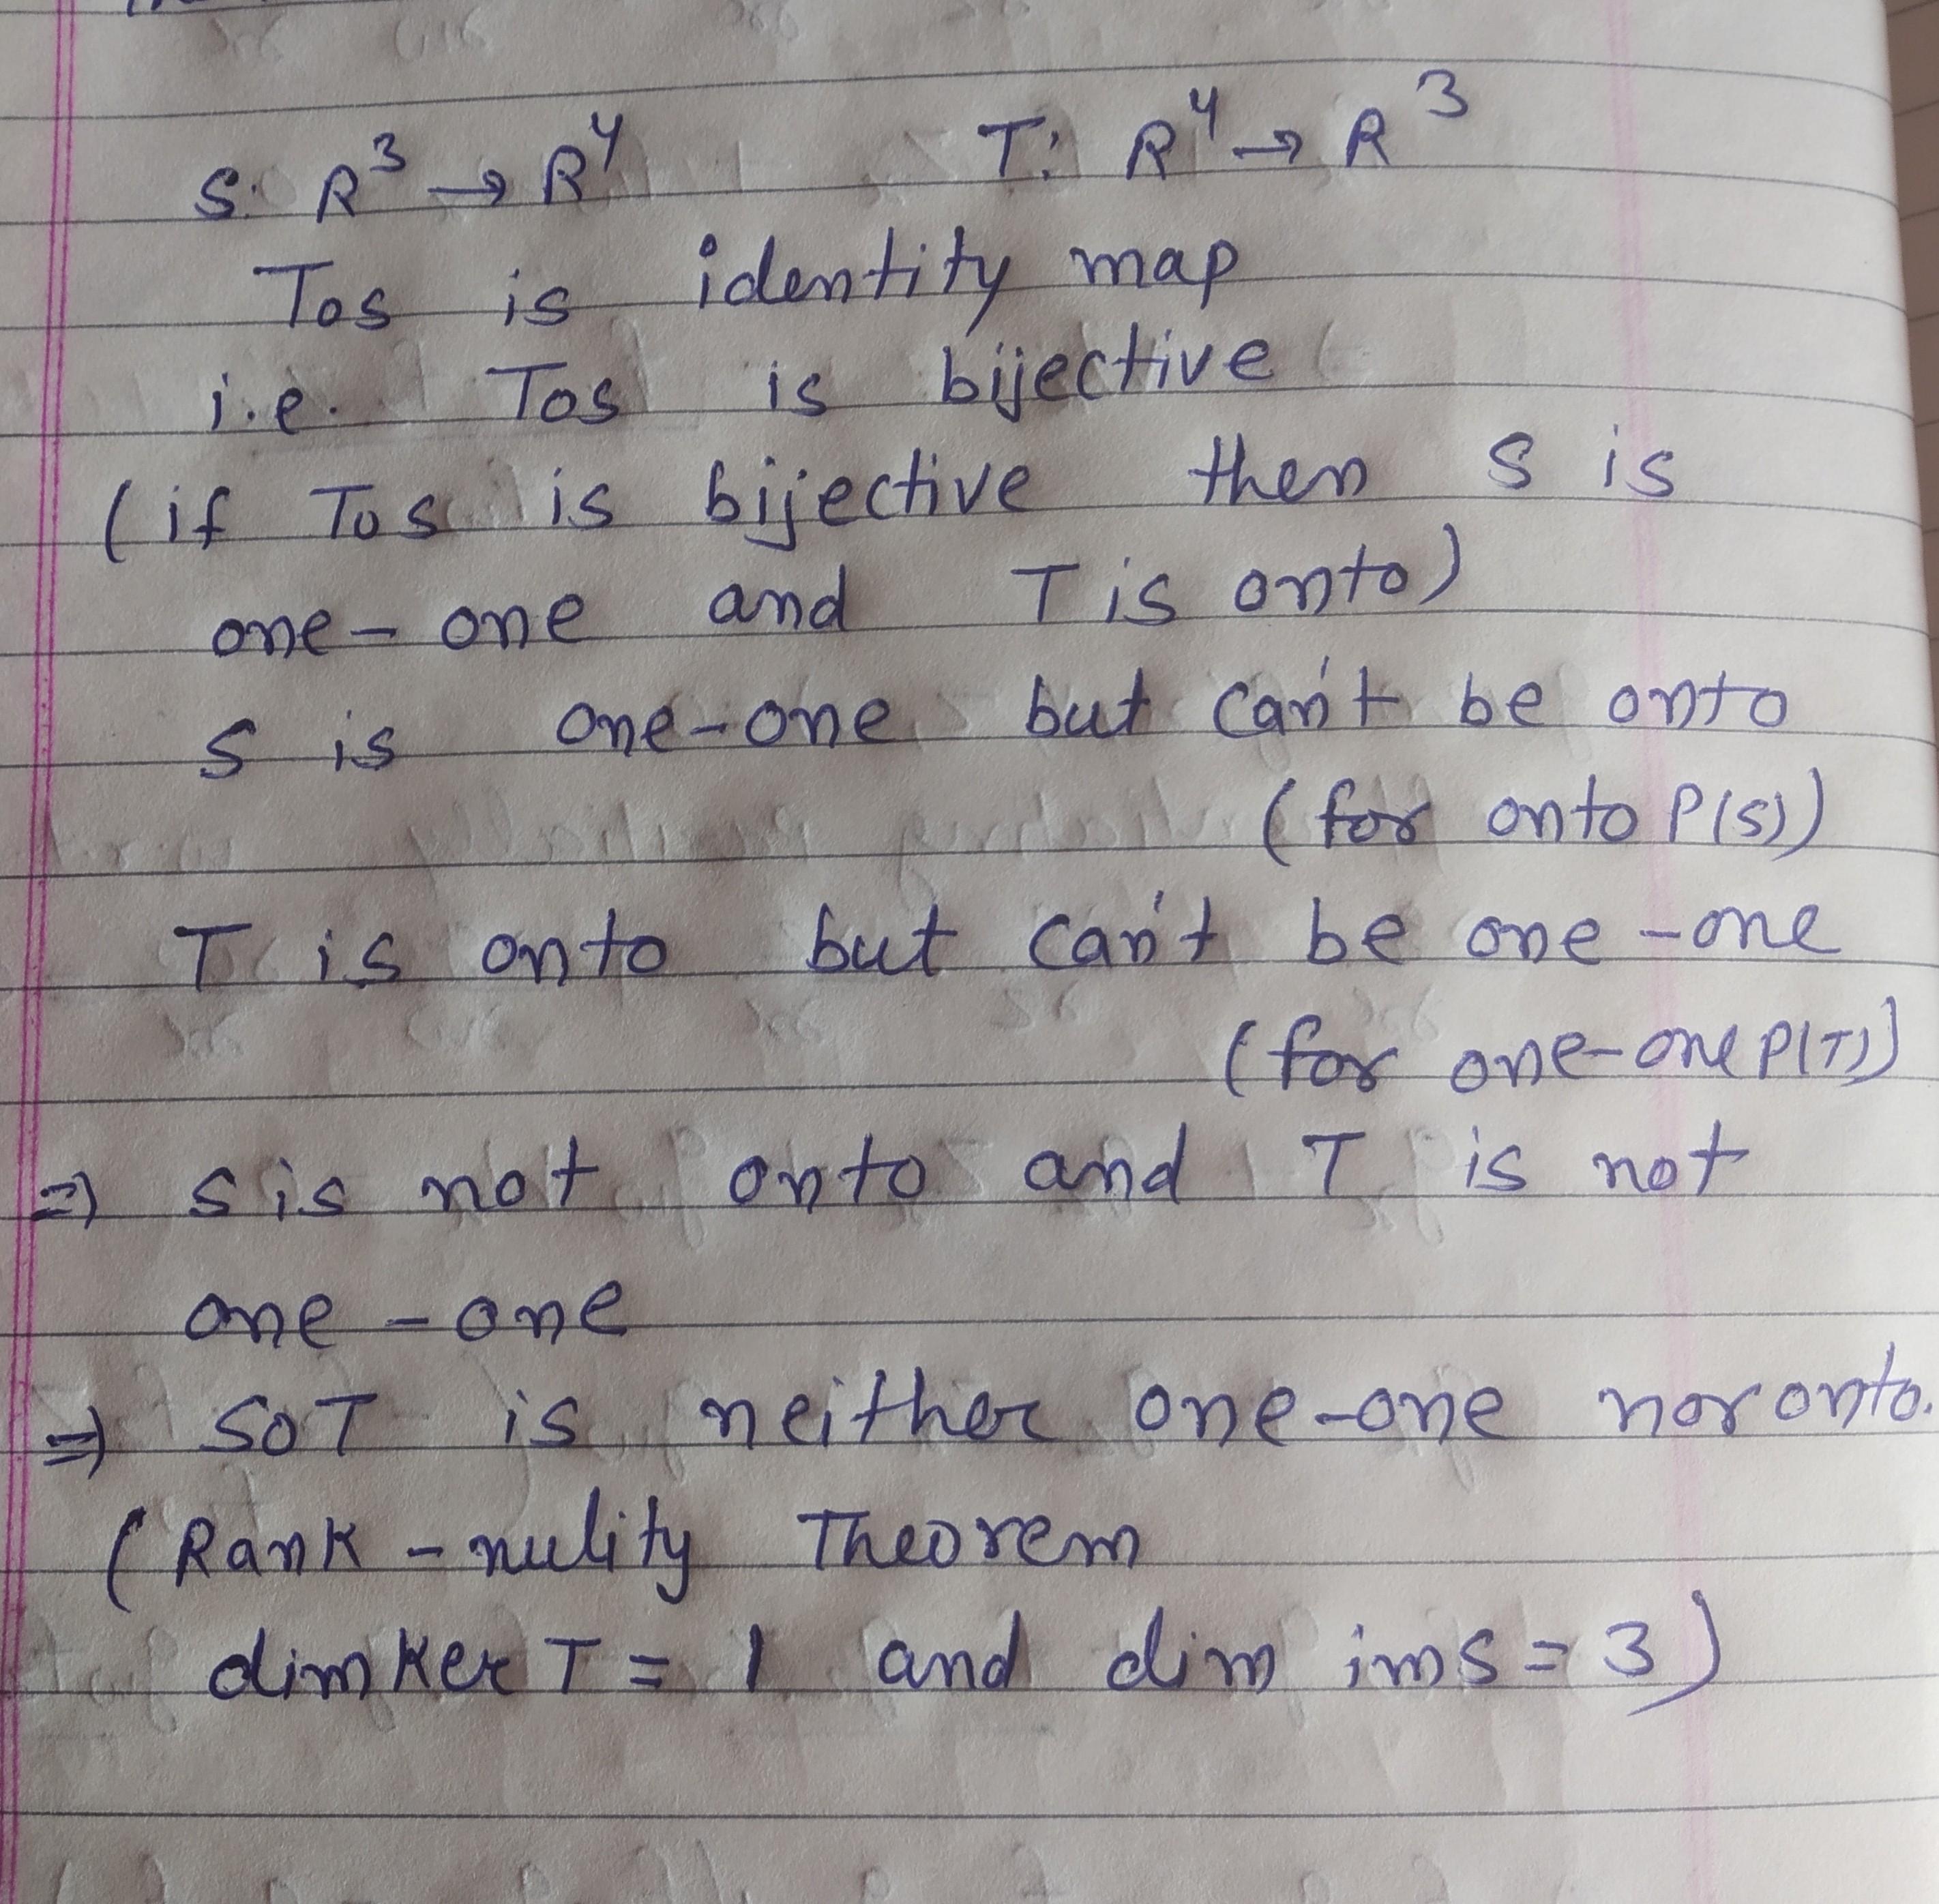 S: R³ → R⁴ T: R⁴ → R³
Tos is identity map
i.e. Tos is bijective
(if Tos is bijective then S is
one-one and T is onto)
S is one-one but can't be onto
(for onto P(S))
T is onto but can't be one-one
(for one-one P(T))
⇒ S is not onto and T is not
one-one
⇒ SoT is neither one-one nor onto.
(Rank-nulity Theorem
dim Ker T = 1 and dim im S = 3)